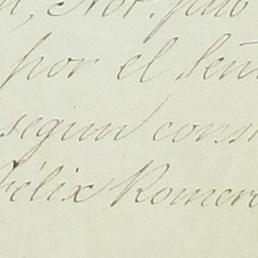 Not. pub
por el Señ
segun cons
Félix Romero